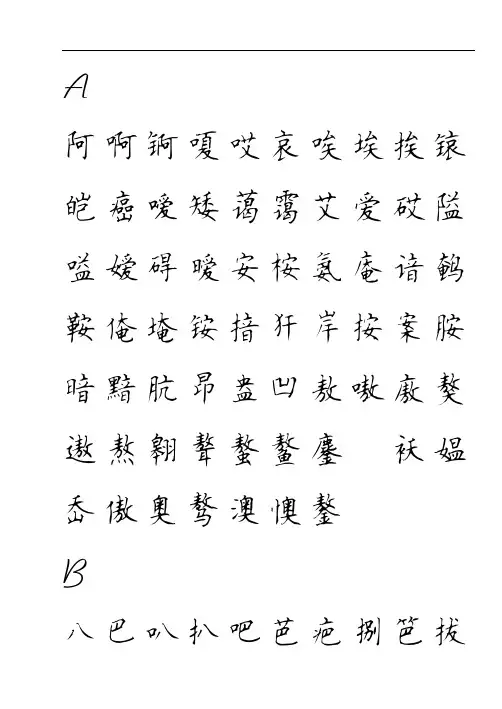 A
阿 啊 锕 嗄 哎 哀 唉 埃 挨 锿
皑 癌 嗳 矮 蔼 霭 艾 爱 砹 隘
嗌 嫒 碍 暧 安 桉 氨 庵 谙 鹌
鞍 俺 埯 铵 揞 犴 岸 按 案 胺
暗 黯 肮 昂 盎 凹 敖 嗷 廒 獒
遨 熬 翱 聱 螯 鳌 鏖 袄 媪
岙 傲 奥 骜 澳 懊 鏊
B
八 巴 叭 扒 吧 芭 疤 捌 笆 拔